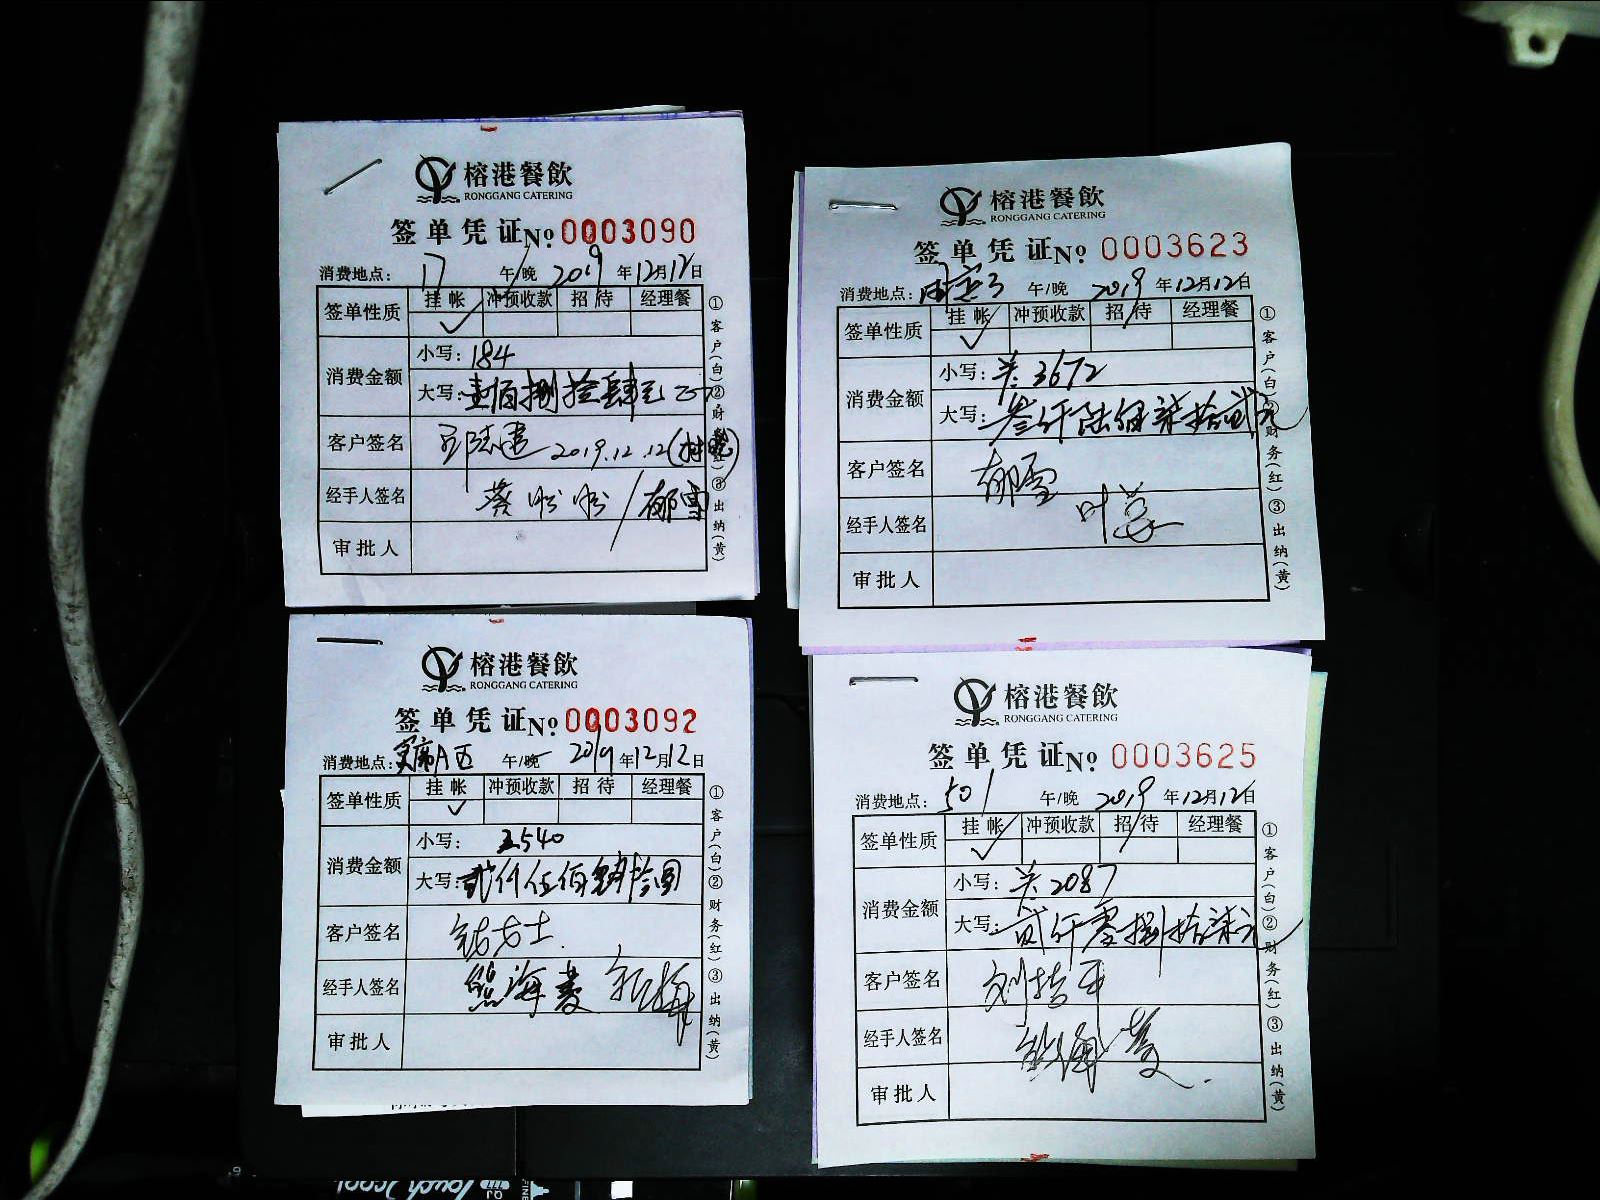 榕港餐飲
RONGGANG CATERING
签单凭证 Nº 0003090
消费地点: 17 午/晚 2019年12月12日
签单性质 挂帐 冲预收款 招待 经理餐
✓
消费金额 小写: 184
大写: 壹佰捌拾肆元
客户签名 2019.12.12
经手人签名 / 郁雪
审批人
①客户(白)②财务(红)③出纳(黄)
榕港餐飲
RONGGANG CATERING
签单凭证 Nº 0003623
消费地点: 午/晚 2019年12月12日
签单性质 挂帐 冲预收款 招待 经理餐
✓
消费金额 小写: 3672
大写: 叁仟陆佰柒拾贰元
客户签名 郁雪
经手人签名 叶蓉
审批人
①客户(白)②财务(红)③出纳(黄)
榕港餐飲
RONGGANG CATERING
签单凭证 Nº 0003092
消费地点: 午/晚 2019年12月12日
签单性质 挂帐 冲预收款 招待 经理餐
✓
消费金额 小写: 2540
大写: 贰仟伍佰肆拾圆
客户签名 钱女士
经手人签名 熊海菱
审批人
①客户(白)②财务(红)③出纳(黄)
榕港餐飲
RONGGANG CATERING
签单凭证 Nº 0003625
消费地点: 501 午/晚 2019年12月12日
签单性质 挂帐 冲预收款 招待 经理餐
✓
消费金额 小写: 2087
大写: 贰仟零捌拾柒元
客户签名
经手人签名 熊海菱
审批人
①客户(白)②财务(红)③出纳(黄)
Touch 2cool